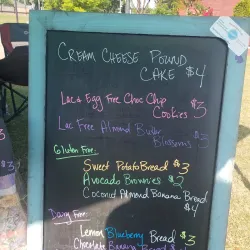 CREAM CHEESE POUND
CAKE $4
Lac & Egg Free Choc Chip
Cookies $3
Lac Free Almond Butter
Blossoms $3
Gluten Free:
Sweet Potato Bread $3
Avocado Brownies $2
Coconut Almond Banana Bread
$4
Dairy Free:
Lemon Blueberry Bread $3
Chocolate Banana